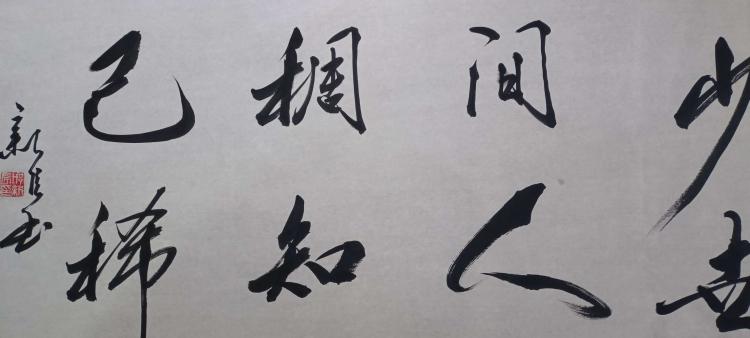 少世
间人
稠知
己稀
新
书